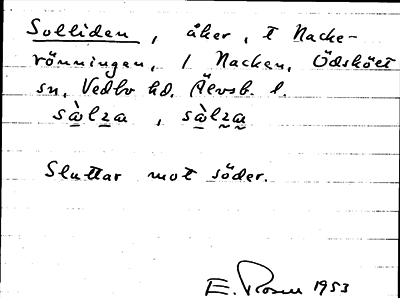 Solliden, åker, t Nacke-
rönningen, / Nacken, Ödsköet
sn, Vedbo hd, Älvsb. l.
sàlza, sàlza
Sluttar mot söder.
E. Rosen 1953